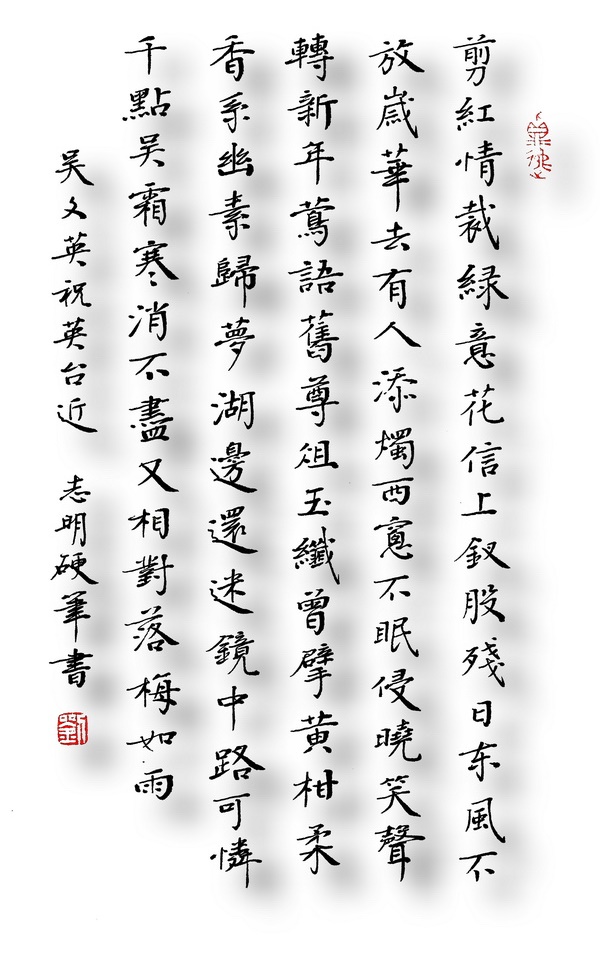 剪紅情裁緑意花信上釵股殘日东風不
放歲華去有人添燭西窻不眠侵曉笑聲
轉新年鶯語舊尊俎玉纖曾擘黄柑柔
香系幽素歸夢湖邊還迷鏡中路可憐
千點吴霜寒消不盡又相對落梅如雨
吴文英祝英台近 志明硬筆書
劉